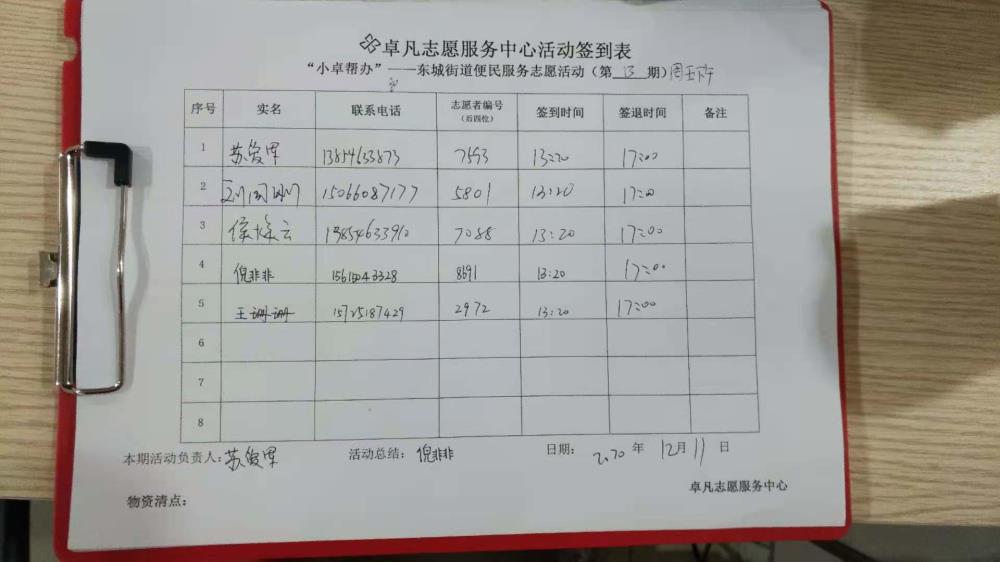 卓凡志愿服务中心活动签到表
“小卓帮办”——东城街道便民服务志愿活动（第 13 期）周五下午
序号 实名 联系电话 志愿者编号（后四位） 签到时间 签退时间 备注
1 苏俊军 13854633873 7593 13:20 17:00
2 15066087177 5801 13:20 17:00
3 侯焕云 13854633910 7088 13:20 17:00
4 倪非非 15615043328 8691 13:20 17:00
5 王珊珊 15725187429 2972 13:20 17:00
6
7
8
本期活动负责人：苏俊军 活动总结：倪非非 日期：2020 年 12月 11 日
卓凡志愿服务中心
物资清点：